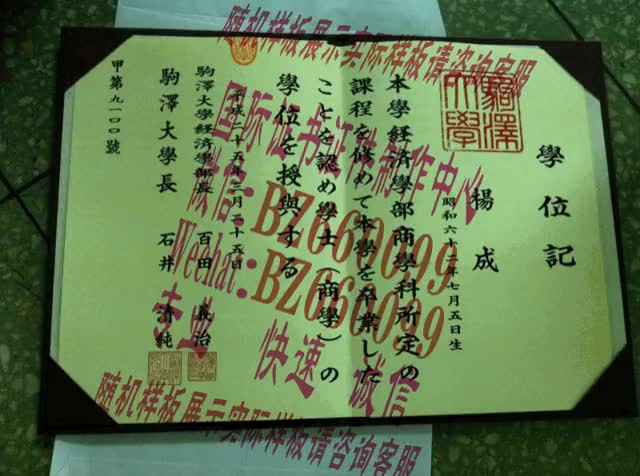 學位記
楊成
昭和六十二年七月五日生
本學経済學部商學科所定の
課程を修めて本學を卒業した
ことを認め學士（商學）の
學位を授與する
平成二十五年三月二十五日
駒澤大學経済學部長 百田 義治
駒澤大學長 石井 清純
甲第九一〇〇號
駒澤大學
随机样板展示实际样板请咨询客服
国际证书证件制作中心
微信:BZ660099
Wechat:BZ660099
专业 快速 诚信
随机样板展示实际样板请咨询客服